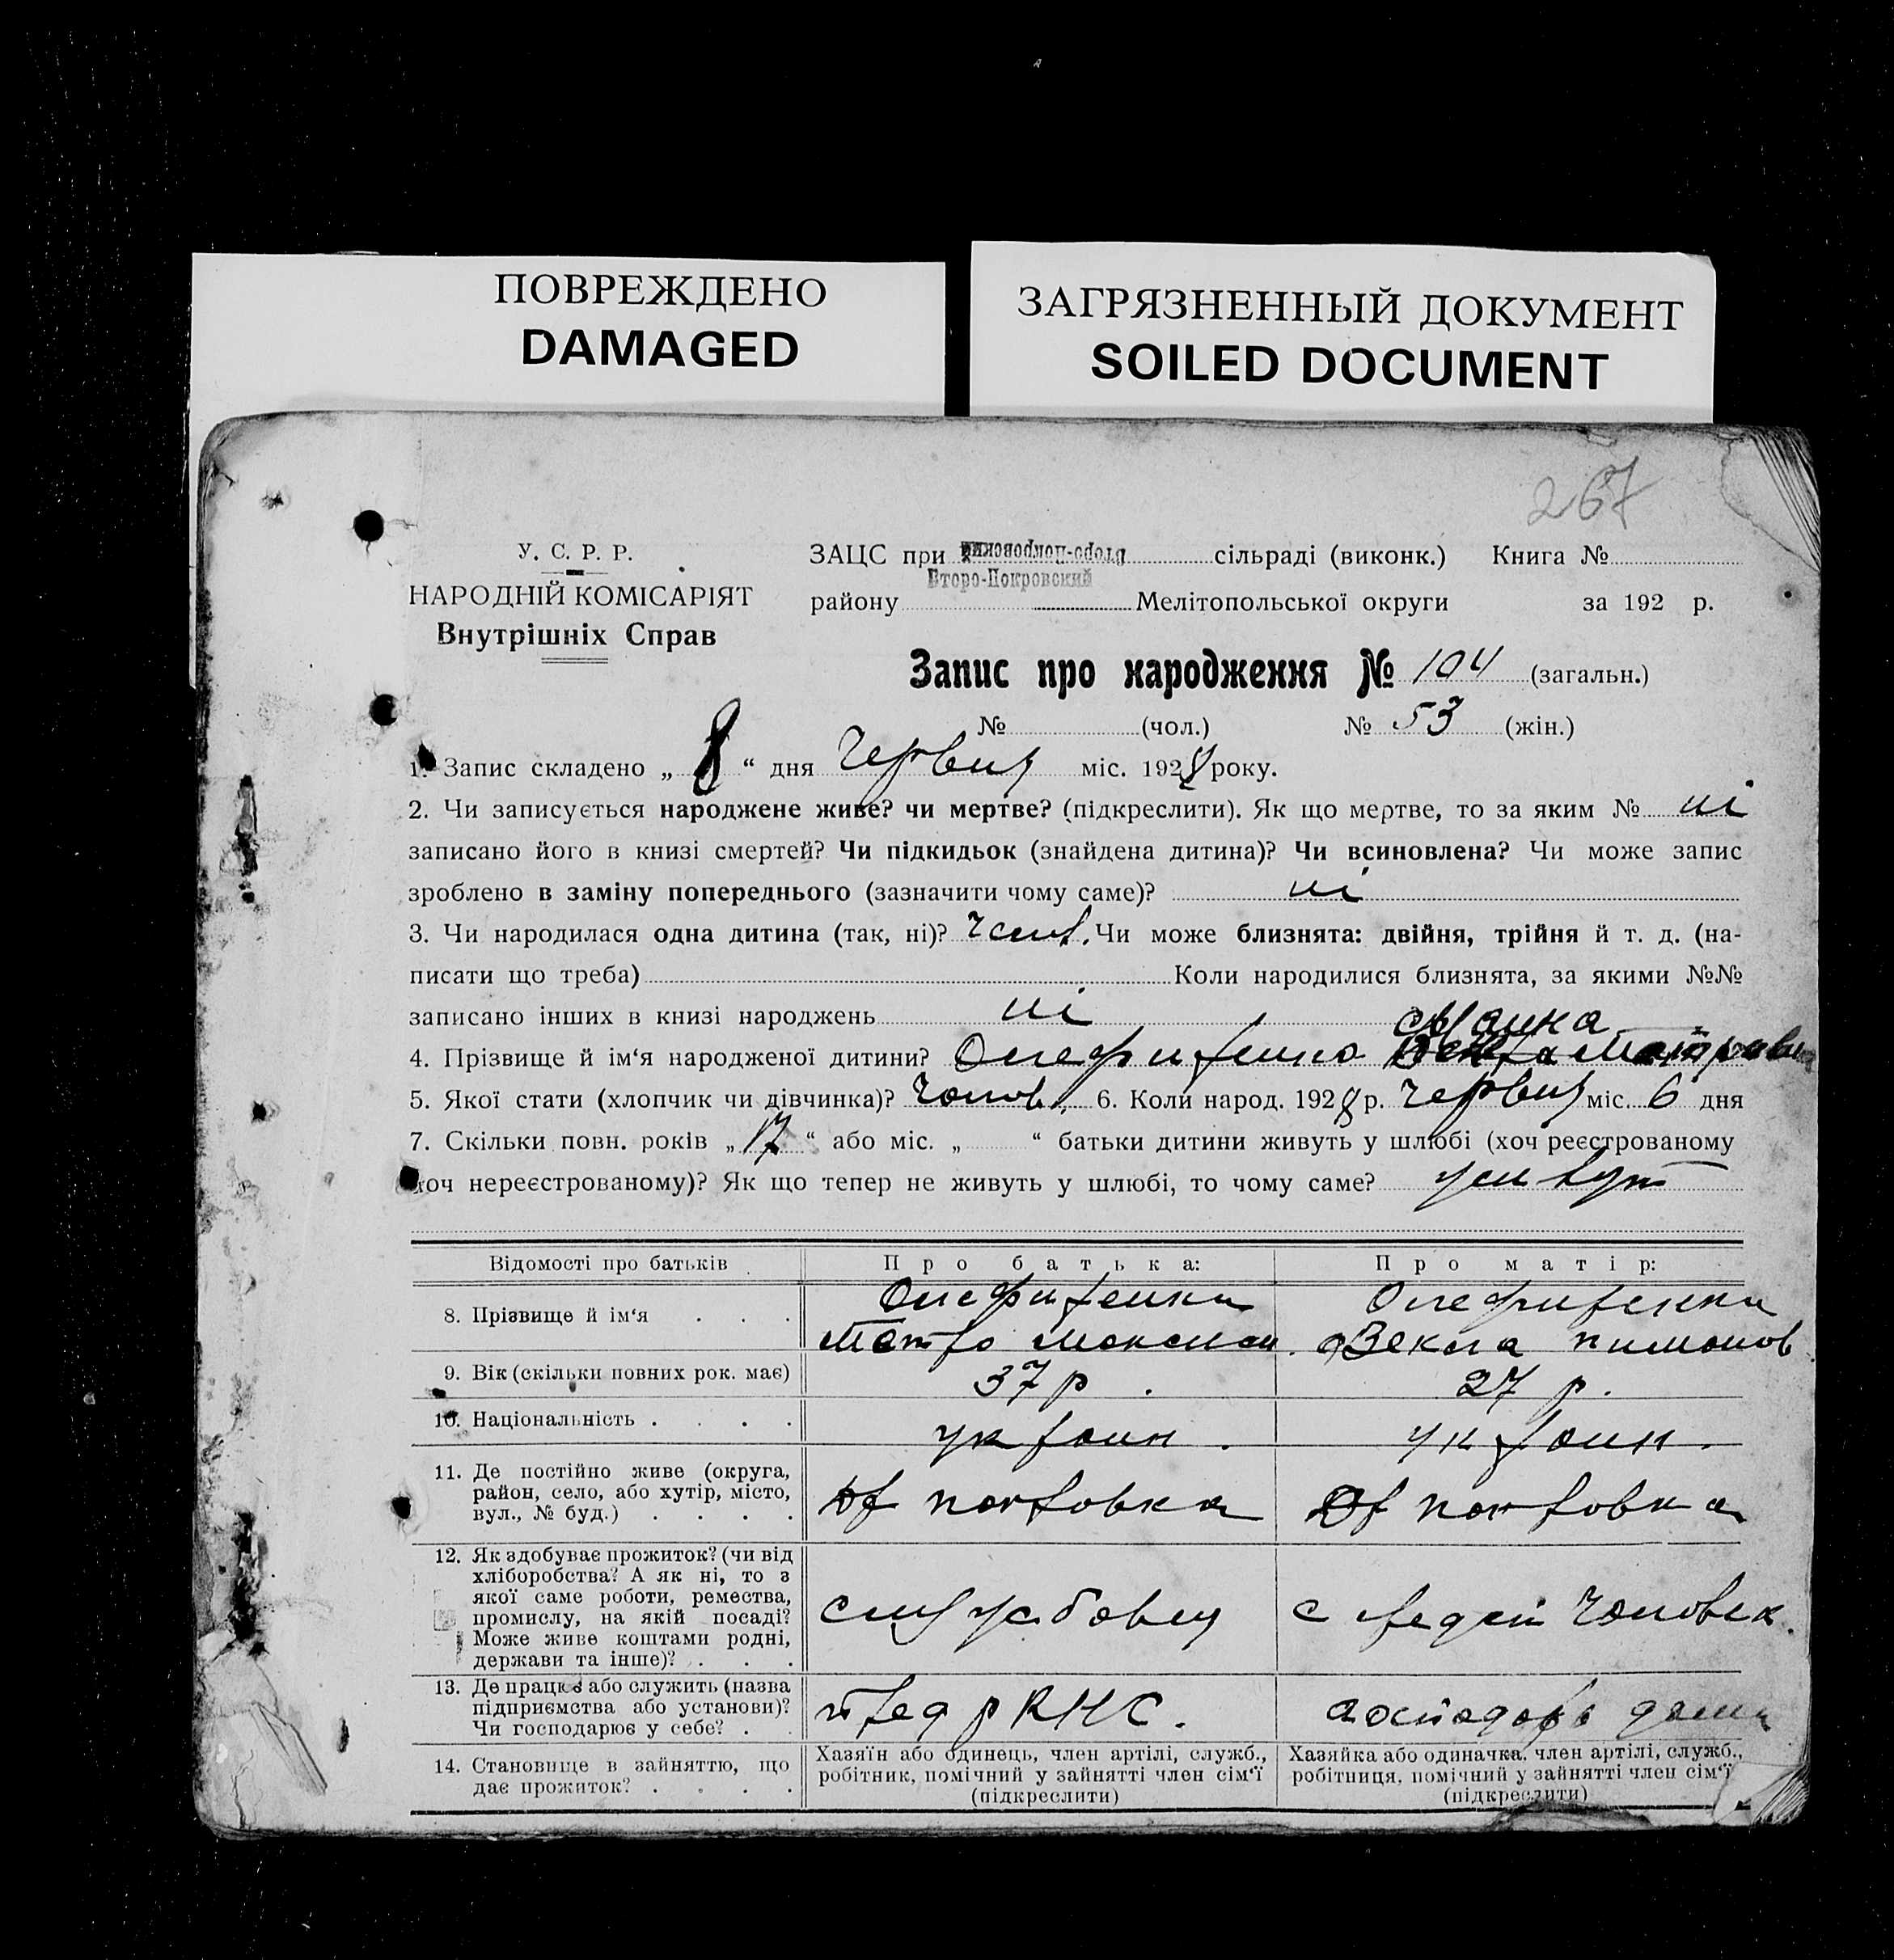 ПОВРЕЖДЕНО
DAMAGED
ЗАГРЯЗНЕННЫЙ ДОКУМЕНТ
SOILED DOCUMENT
267
У. С. Р. Р.
НАРОДНІЙ КОМІСАРІЯТ
Внутрішніх Справ
ЗАЦС при Второ-Покровский сільраді (виконк.) Книга №
району Второ-Покровский Мелітопольської округи за 192 р.
Запис про народження № 104 (загальн.)
№ (чол.) № 53 (жін.)
1. Запис складено „ 8 “ дня Червня міс. 1928 року.
2. Чи записується народжене живе? чи мертве? (підкреслити). Як що мертве, то за яким № ні
записано його в книзі смертей? Чи підкидьок (знайдена дитина)? Чи всиновлена? Чи може запис
зроблено в заміну попереднього (зазначити чому саме)? ні
3. Чи народилася одна дитина (так, ні)? Чи може близнята: двійня, трійня й т. д. (на-
писати що треба) Коли народилися близнята, за якими №№
записано інших в книзі народжень ні
4. Прізвище й ім‘я народженої дитини?
5. Якої стати (хлопчик чи дівчинка)? Чолов. 6. Коли народ. 1928 р. Червня міс. 6 дня
7. Скільки повн. років „ 17 “ або міс. „ “ батьки дитини живуть у шлюбі (хоч реєстрованому
хоч нереєстрованому)? Як що тепер не живуть у шлюбі, то чому саме? живут
Відомості про батьків
Про батька:
Про матір:
8. Прізвище й ім‘я . . .
Петро Максим.
Векла Пимонов
9. Вік (скільки повних рок. має)
37 р.
27 р.
10. Національність . . . .
украин.
украин.
11. Де постійно живе (округа,
район, село, або хутір, місто,
вул., № буд.) . . . .
покровка
покровка
12. Як здобуває прожиток? (чи від
хліборобства? А як ні, то з
якої саме роботи, ремества,
промислу, на якій посаді?
Може живе коштами родні,
держави та інше)? . . .
службовец
с средств Чоловек.
13. Де працює або служить (назва
підприємства або установи)?
Чи господарює у себе? . .
пред РКНС.
14. Становище в зайняттю, що
дає прожиток? . . . .
Хазяїн або одинець, член артілі, служб.,
робітник, помічний у зайнятті член сім‘ї
(підкреслити)
Хазяйка або одиначка, член артілі, служб.,
робітниця, помічний у зайнятті член сім‘ї
(підкреслити)